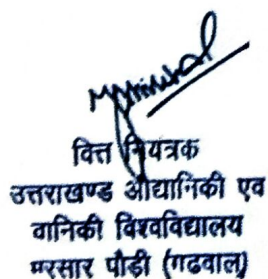 वित्त नियंत्रक
उत्तराखण्ड औद्यानिकी एव
वानिकी विश्वविद्यालय
भरसार पौड़ी (गढवाल)